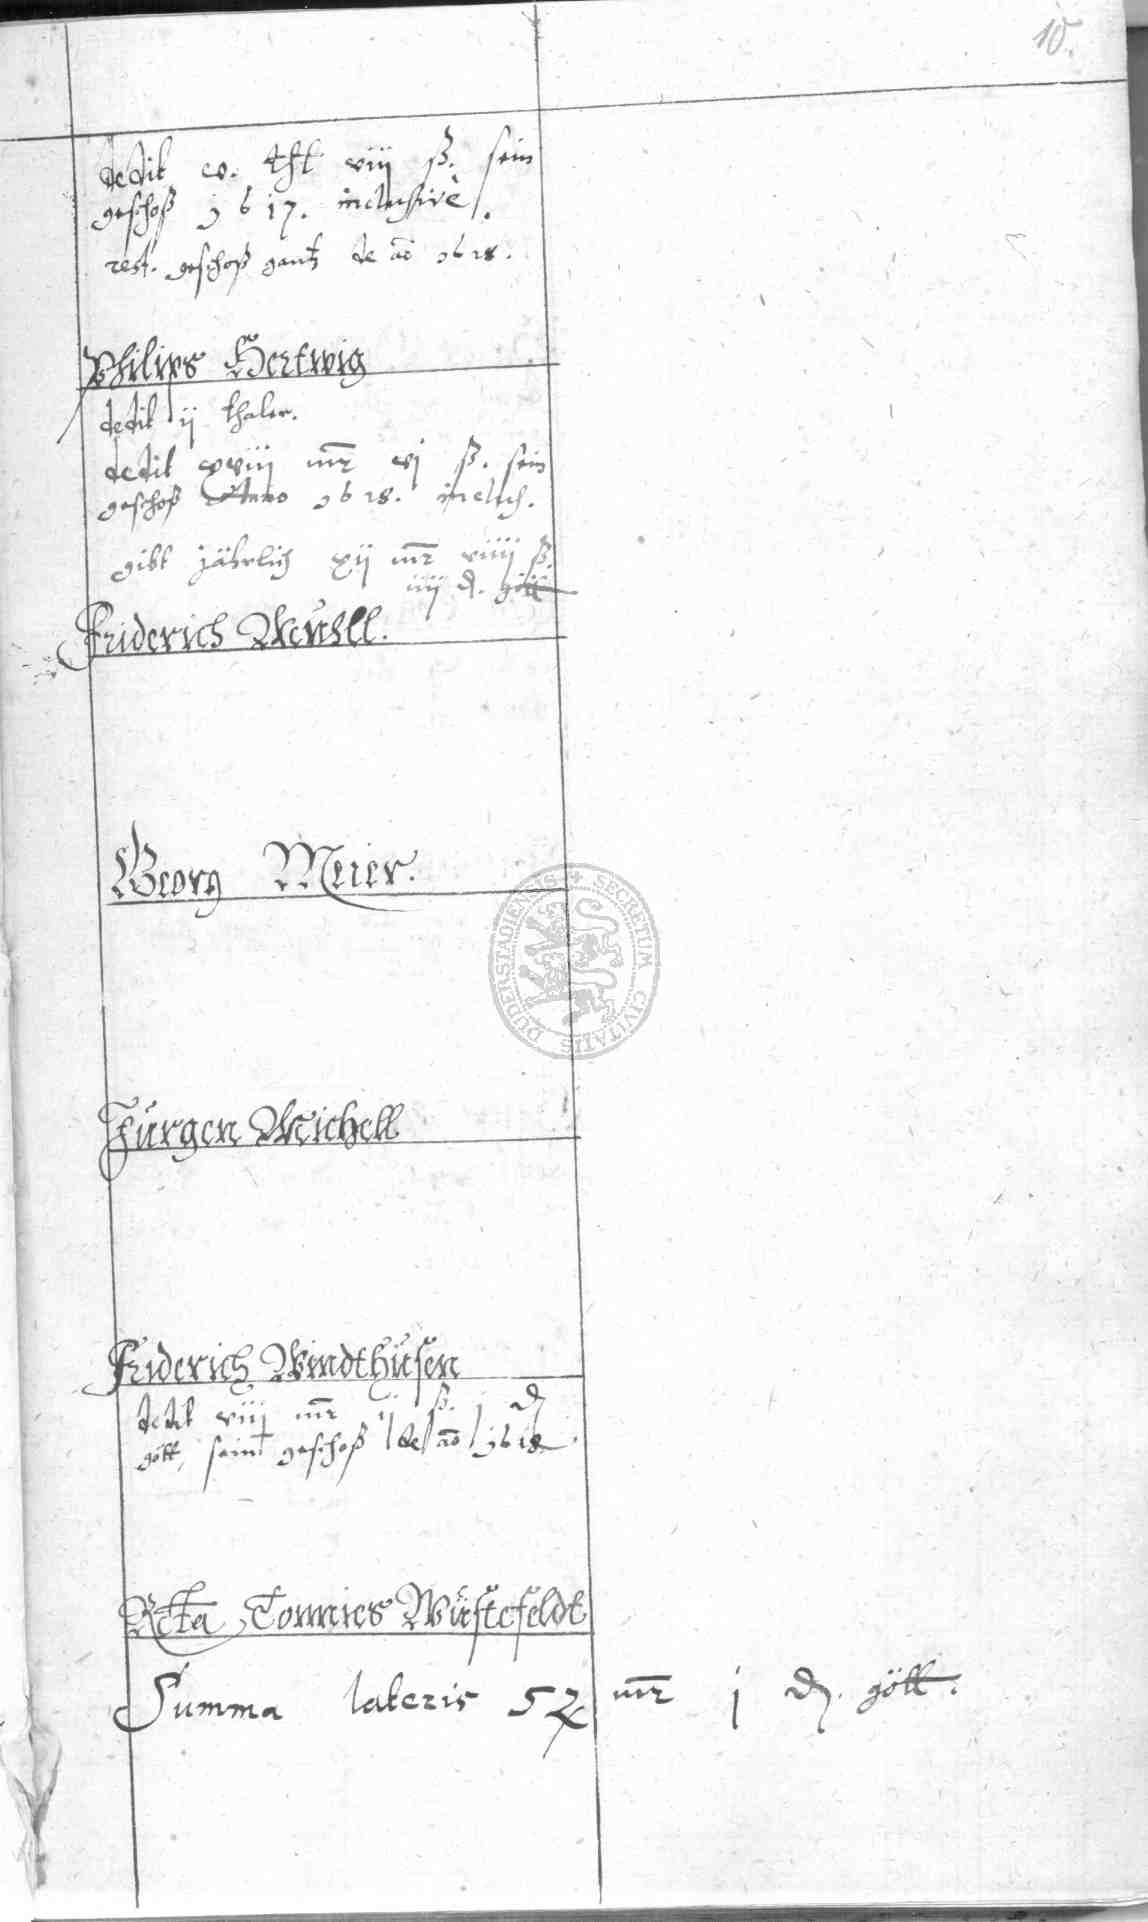 10.
dedit v. thl viij ß. sein
geschoß 1617. inclusivè.
rest. geschoß gantz de ao 1618.
Philips Hertwig
dedit ij thaler.
dedit xviij mr vj ß. sein
geschoß Anno 1618. inclus.
gibt jährlich xij mr viiij ß.
iiij d. gött
Friderich
Georg Meier.
Jürgen
Friderich Windthusen
dedit viij mr ij ß. j d
gött, sein geschoß de ao 1618.
Tonnies Wüstefeldt
Summa lateris 57 mr j d. gött.
SECRETUM CIVITATIS DUDERSTADIENSIS